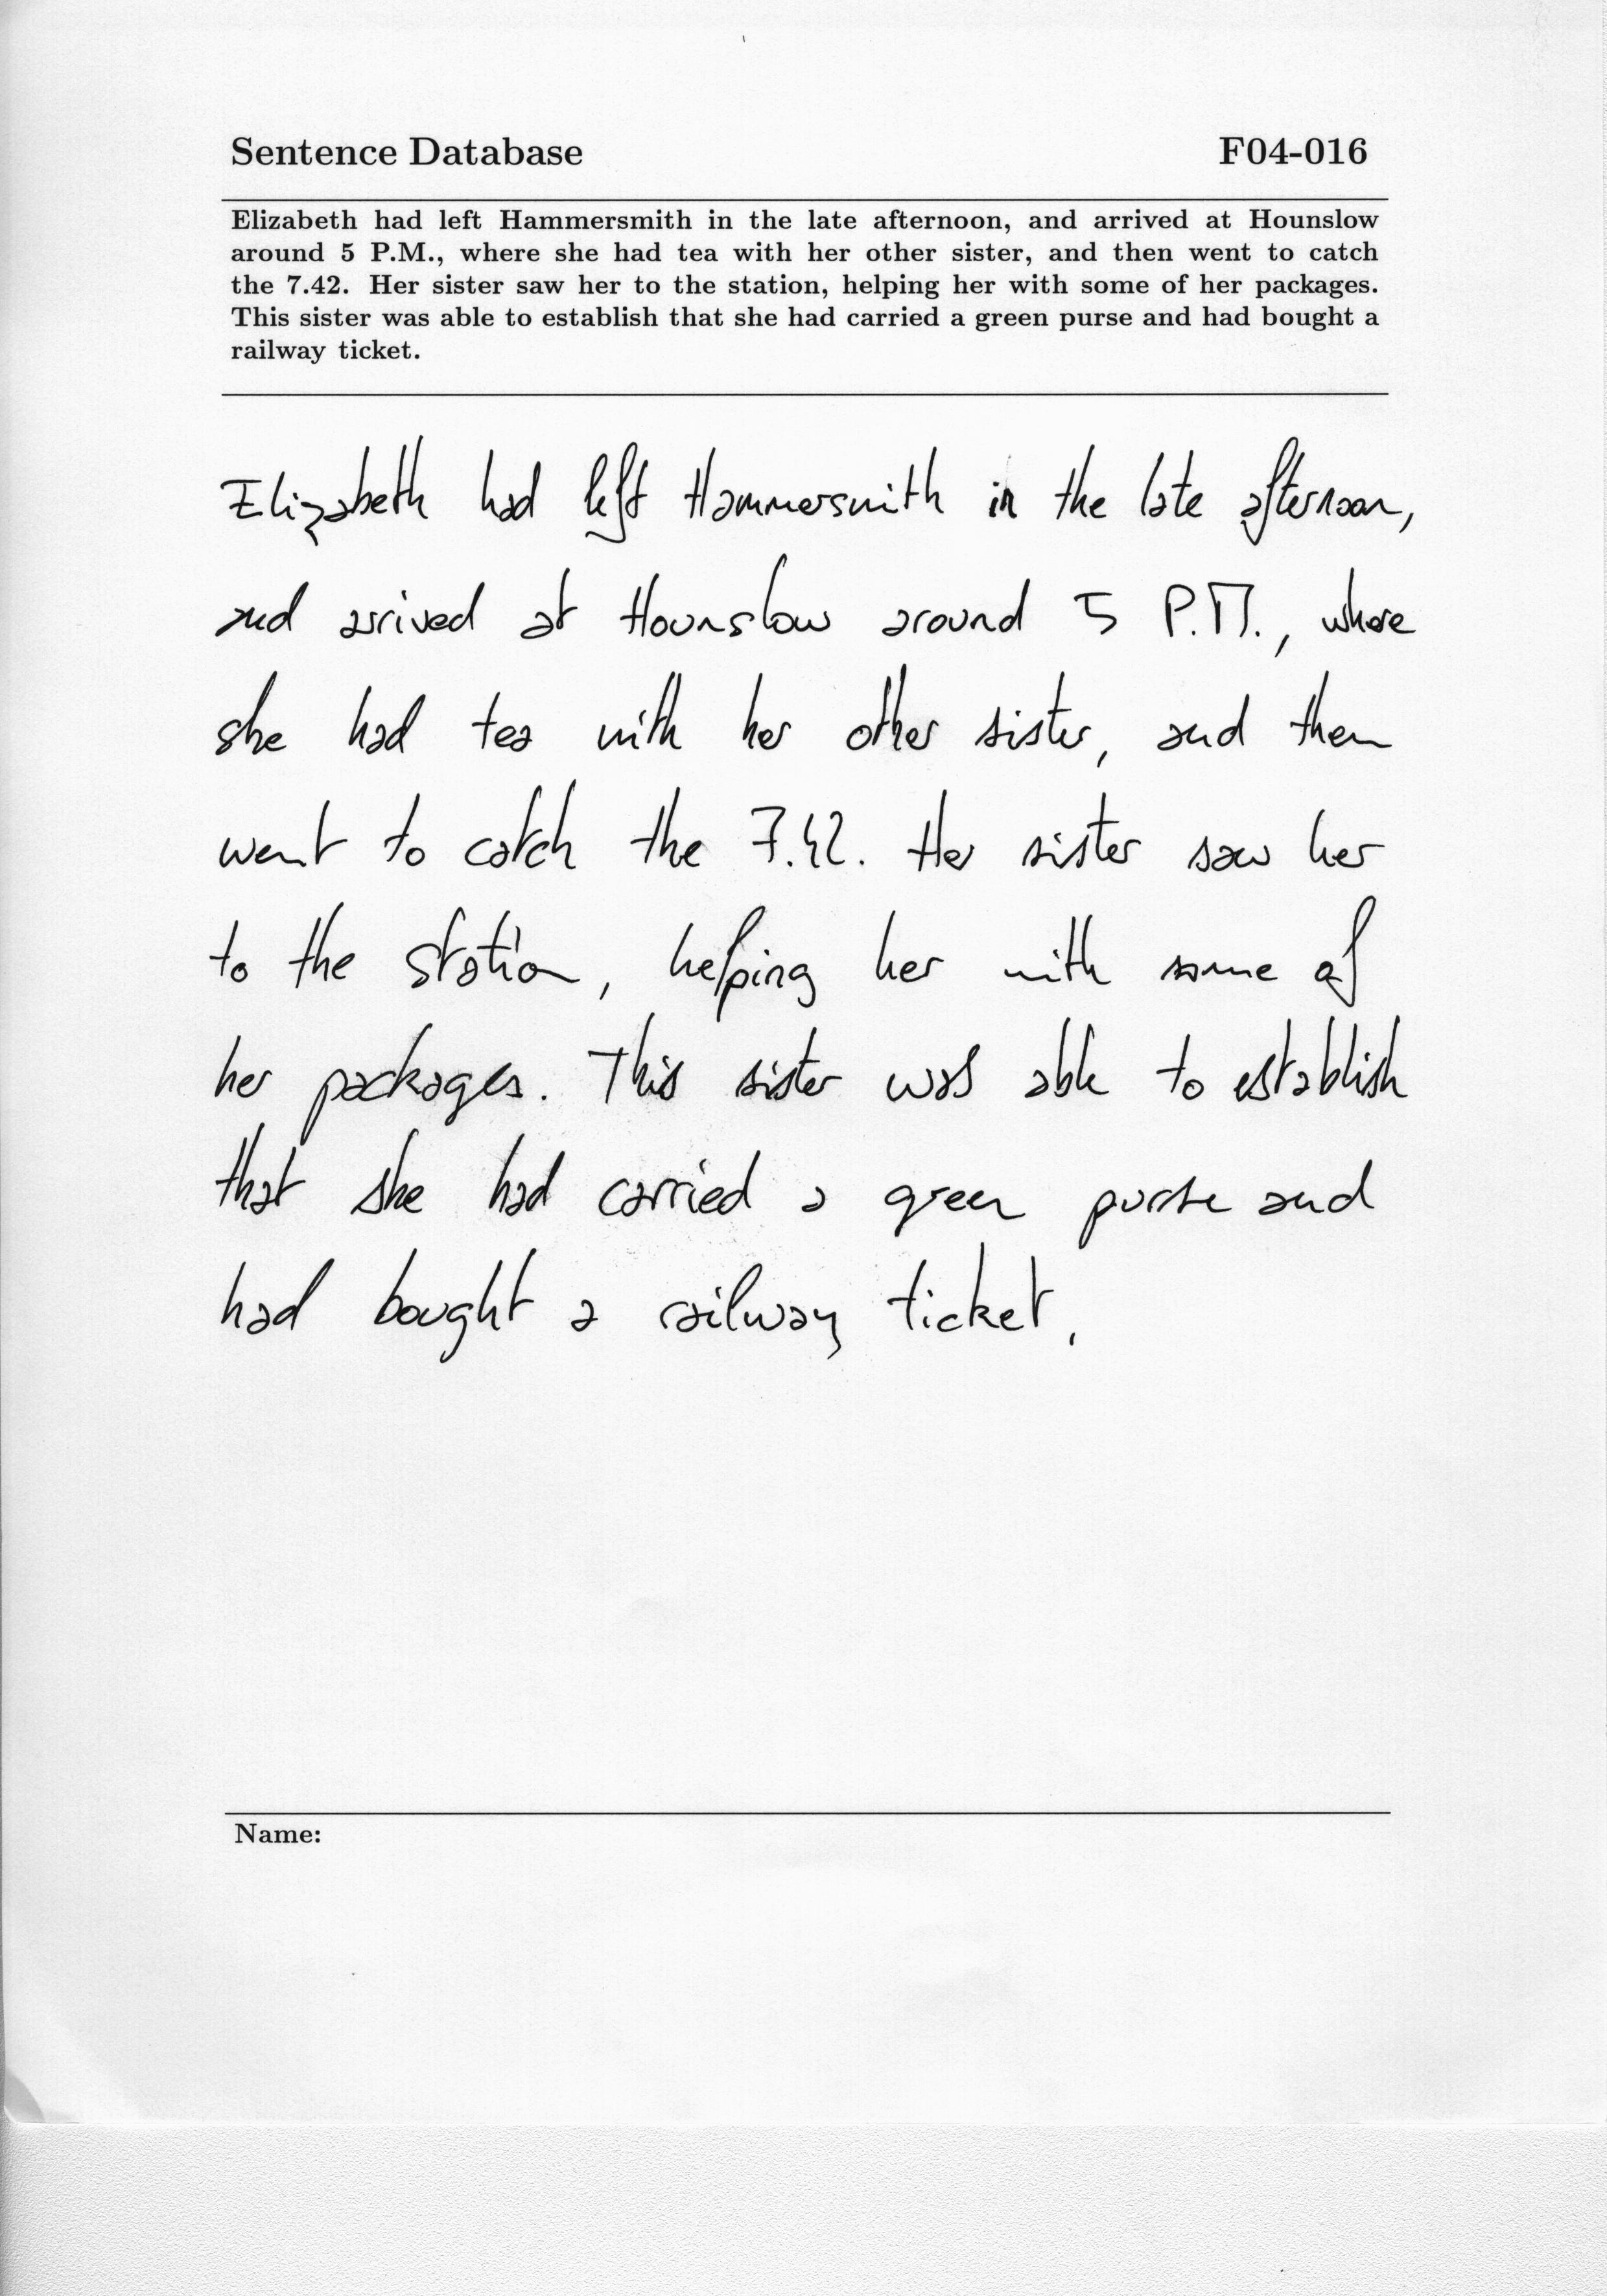 Sentence Database F04-016
Elizabeth had left Hammersmith in the late afternoon, and arrived at Hounslow
around 5 P.M., where she had tea with her other sister, and then went to catch
the 7.42. Her sister saw her to the station, helping her with some of her packages.
This sister was able to establish that she had carried a green purse and had bought a
railway ticket.
Elizabeth had left Hammersmith in the late afternoon,
and arrived at Hounslow around 5 P.M., where
she had tea with her other sister, and then
went to catch the 7.42. Her sister saw her
to the station, helping her with some of
her packages. This sister was able to establish
that she had carried a green purse and
had bought a railway ticket.
Name: